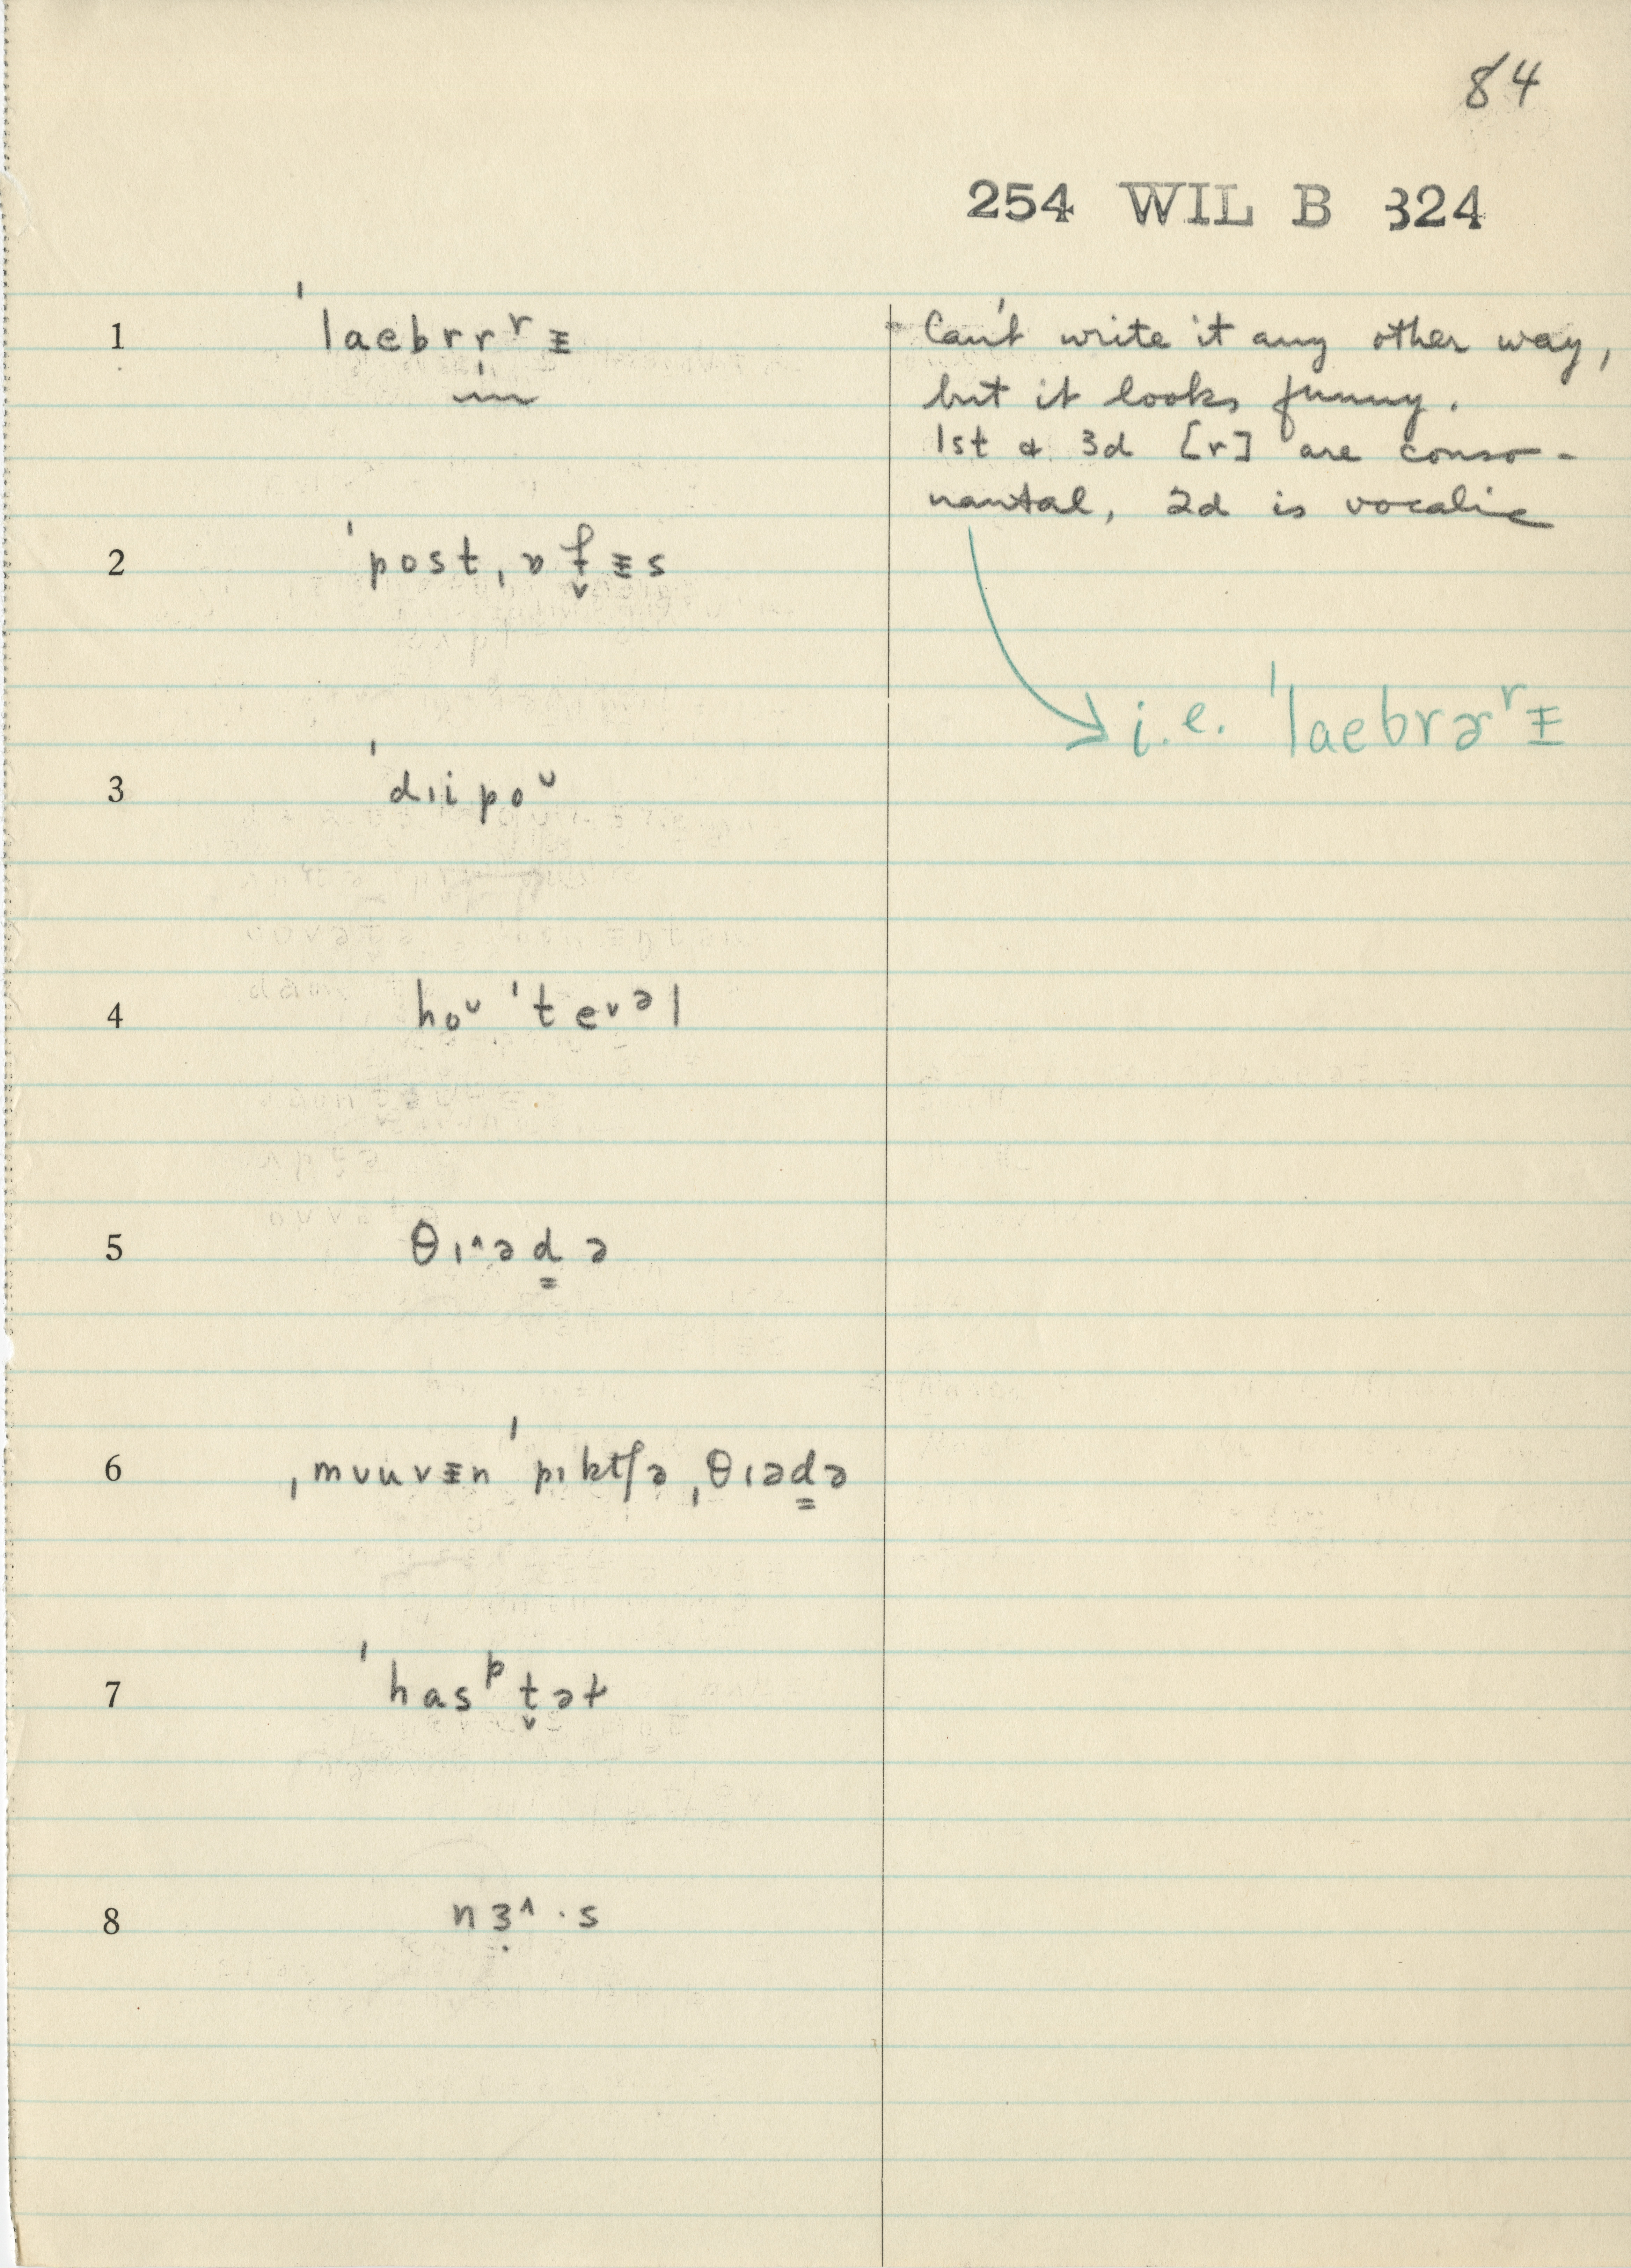 84
254 WIL B 324
1 ˈlaebrr̩ʳᵻ
Can't write it any other way,
but it looks funny.
1st & 3d [r] are conso-
nantal, 2d is vocalic
2 ˈpostˌɒf̬ᵻs
i.e. ˈlaebrɚʳᵻ
3 ˈdɪipoᶷ
4 hoᶷˈte˅ᵊl
5 θɪ^əd͇ə
6 ˌmʊuvᵻnˈpɪktʃəˌθɪəd͇ə
7 ˈhasᵖt̬əɫ
8 nɜ̣^·s